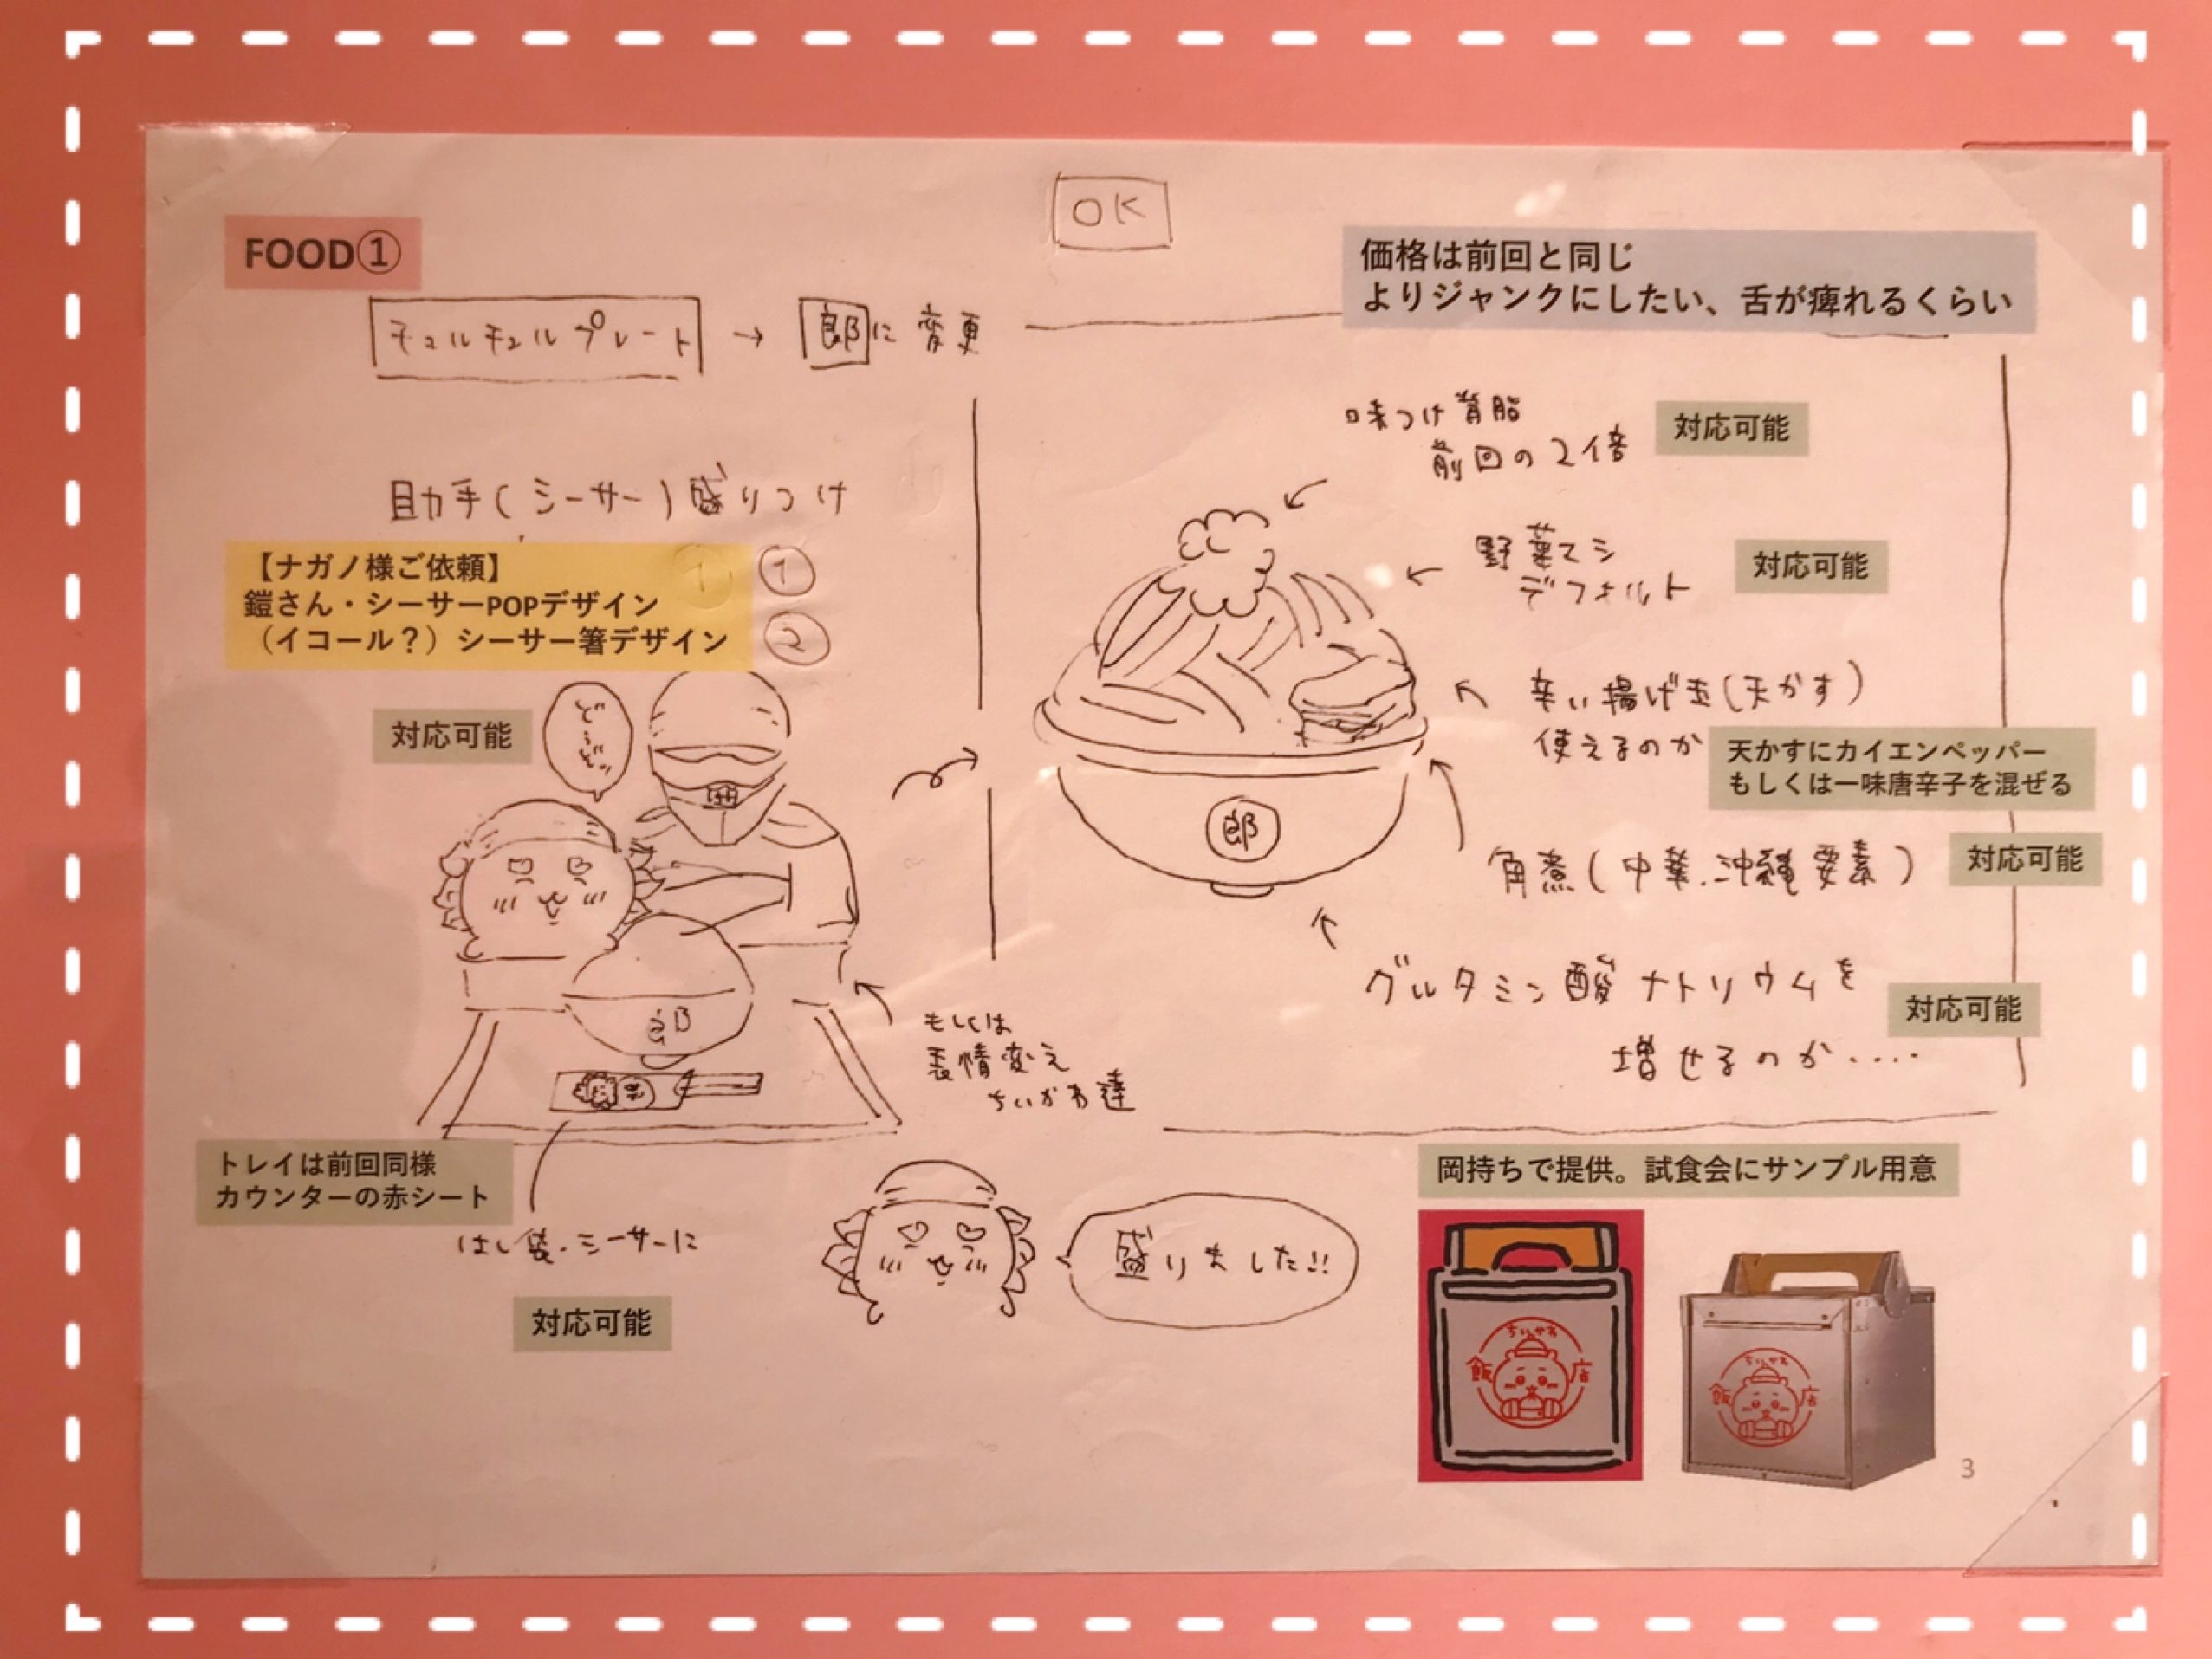 OK
FOOD①
価格は前回と同じ
よりジャンクにしたい、舌が痺れるくらい
チュルチュルプレート → 郎に変更
助手(シーサー)盛りつけ
【ナガノ様ご依頼】
鎧さん・シーサーPOPデザイン
（イコール？）シーサー箸デザイン
①
②
対応可能
どうぞッ
郎
もしくは
表情変え
ちいかわ達
トレイは前回同様
カウンターの赤シート
はし袋・シーサーに
対応可能
盛りました!!
味つけ背脂
前回の2倍
対応可能
野菜マシ
デフォルト
対応可能
辛い揚げ玉(天かす)
使えるのか
天かすにカイエンペッパー
もしくは一味唐辛子を混ぜる
郎
角煮(中華.沖縄要素)
対応可能
グルタミン酸ナトリウムを
増せるのか....
対応可能
岡持ちで提供。試食会にサンプル用意
ちいかわ
飯店
ちいかわ
飯店
3